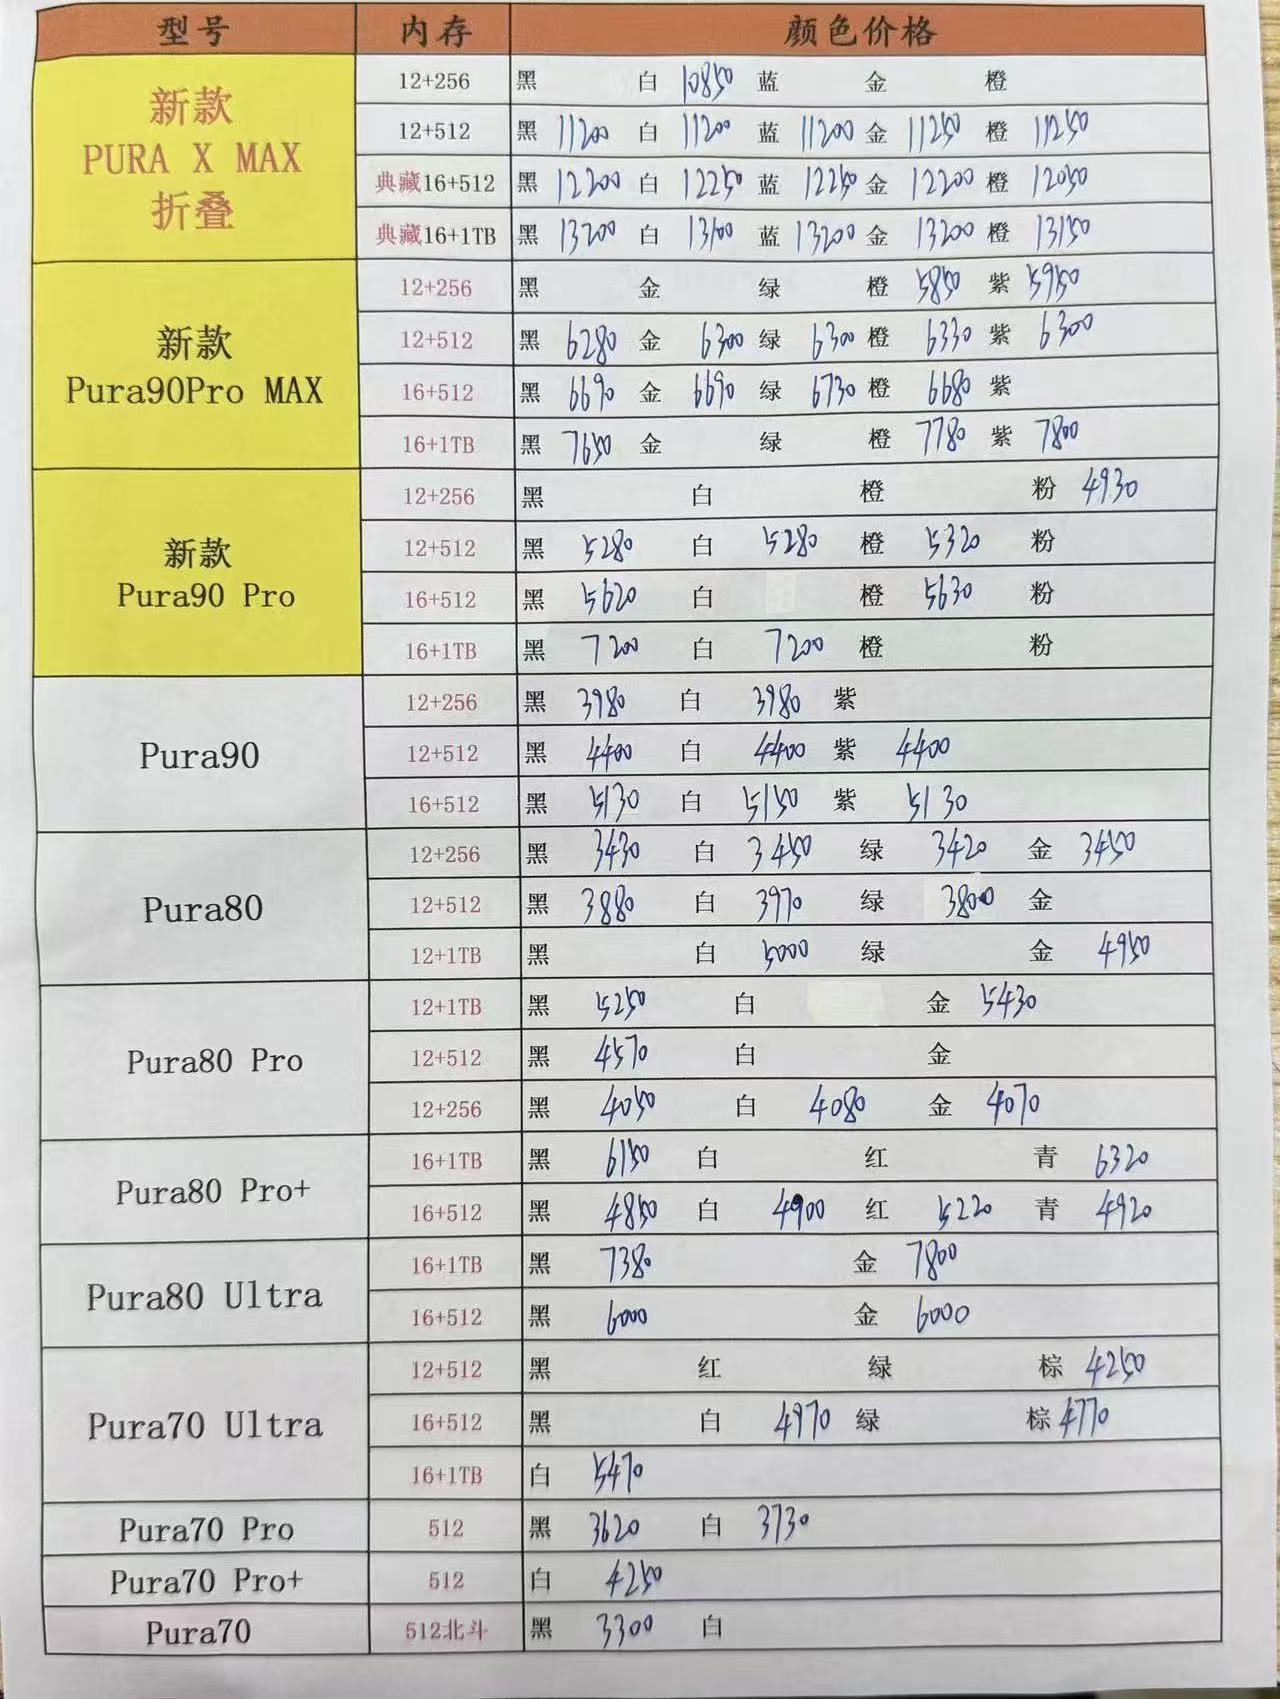 型号 内存 颜色价格
新款 PURA X MAX 折叠
12+256 黑 白 10850 蓝 金 橙
12+512 黑 11200 白 11200 蓝 11200 金 11250 橙 11250
典藏16+512 黑 12200 白 12250 蓝 12250 金 12200 橙 12050
典藏16+1TB 黑 13200 白 13100 蓝 13200 金 13200 橙 13150
新款 Pura90Pro MAX
12+256 黑 金 绿 橙 5850 紫 5950
12+512 黑 6280 金 6300 绿 6300 橙 6330 紫 6300
16+512 黑 6690 金 6690 绿 6730 橙 6680 紫
16+1TB 黑 7650 金 绿 橙 7780 紫 7800
新款 Pura90 Pro
12+256 黑 白 橙 粉 4930
12+512 黑 5280 白 5280 橙 5320 粉
16+512 黑 5620 白 橙 5630 粉
16+1TB 黑 7200 白 7200 橙 粉
Pura90
12+256 黑 3980 白 3980 紫
12+512 黑 4400 白 4400 紫 4400
16+512 黑 5130 白 5150 紫 5130
Pura80
12+256 黑 3430 白 3450 绿 3420 金 3450
12+512 黑 3880 白 3970 绿 3800 金
12+1TB 黑 白 5000 绿 金 4950
Pura80 Pro
12+1TB 黑 5250 白 金 5430
12+512 黑 4570 白 金
12+256 黑 4050 白 4080 金 4070
Pura80 Pro+
16+1TB 黑 6150 白 红 青 6320
16+512 黑 4850 白 4900 红 5220 青 4920
Pura80 Ultra
16+1TB 黑 7380 金 7800
16+512 黑 6000 金 6000
Pura70 Ultra
12+512 黑 红 绿 棕 4250
16+512 黑 白 4970 绿 棕 4770
16+1TB 白 5470
Pura70 Pro 512 黑 3620 白 3730
Pura70 Pro+ 512 白 4250
Pura70 512北斗 黑 3300 白